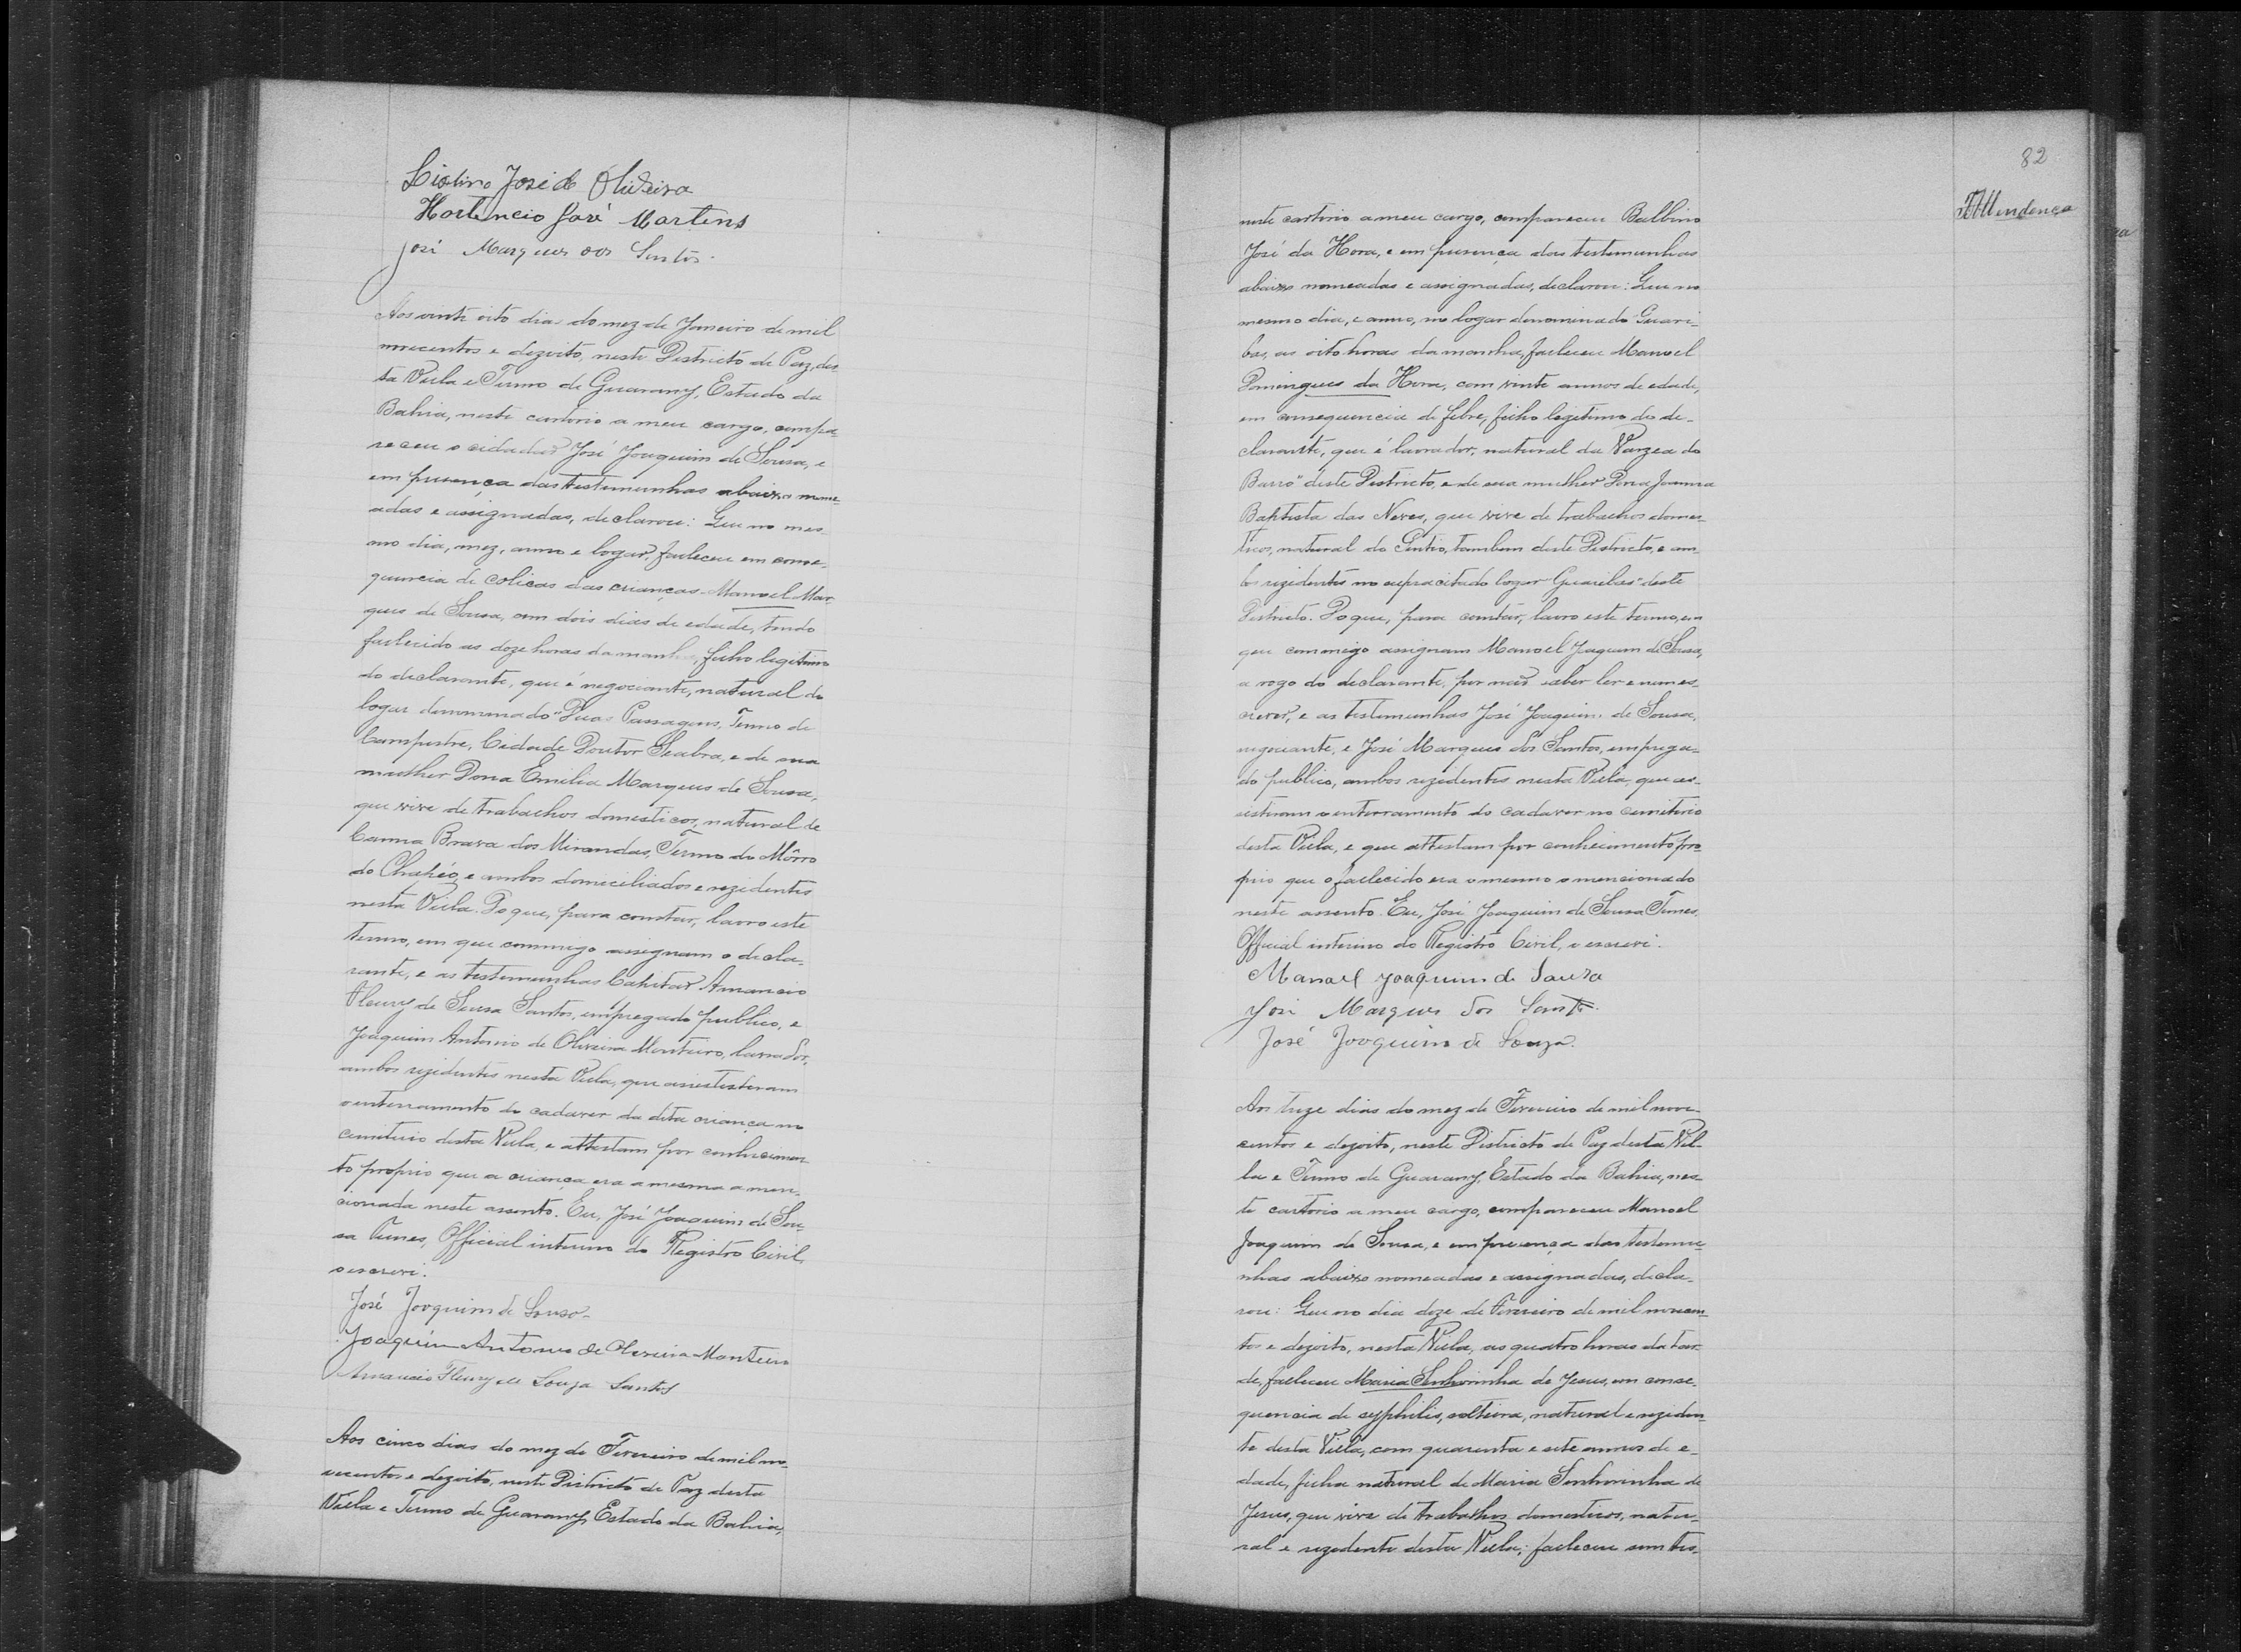 Hortencio José Martins
José Marques dos Santos.
Aos vinte oito dias do mez de Janeiro de mil
novecentos e dezoito, neste Districto de Paz, des-
ta Villa e Termo de Guarany, Estado da
Bahia, neste cartorio a meu cargo, compa-
receu o cidadão José Joaquim de Sousa, e
em presença das testemunhas abaixo nome-
adas e assignadas, declarou: Que no mes-
mo dia, mez, anno e logar, falleceu em conse-
quencia de colicas das crianças Manoel Mar-
ques de Sousa, com dois dias de edade, tendo
fallecido as doze horas da manhã, filho legitimo
do declarante, que é negociante, natural do
logar denominado "Duas Passagens, Termo de
Campestre, Cidade Doutor Seabra, e de sua
mulher Dona Emilia Marques de Sousa,
que vive de trabalhos domesticos, natural de
Canna Brava dos Mirandas, Termo do Môrro
do Chapéo, e ambos domiciliados e rezidentes
nesta Villa. Do que, para constar, lavro este
termo, em que commigo assignam o decla-
rante, e as testemunhas Capitão Amancio
Fleury de Sousa Santos, empregado publico, e
Joaquim Antonio de Oliveira Monteiro, lavrador,
ambos rezidentes nesta Villa, que assistiram
o enterramento do cadaver da dita criança no
cemiterio desta Villa, e attestam por conhecimen-
to proprio que a criança era a mesma a men-
cionada neste assento. Eu, José Joaquim de Sou-
sa Tunes, Official interino do Registro Civil,
o escrevi.
José Joaquim de Souso
Joaquim Antonio de Oliveira Monteiro
Amancio Fleury de Souza Santos
Aos cinco dias do mez de Fevereiro de mil no-
vecentos e dezoito, neste Districto de Paz desta
Villa e Termo de Guarany, Estado da Bahia,
82
neste cartorio a meu cargo, compareceu Balbino
José da Hora, e em presença das testemunhas
abaixo nomeadas e assignadas, declarou: Que no
mesmo dia, e anno, no logar denominado Guari-
bas, as oito horas da manhã, falleceu Manoel
Domingues da Hora, com vinte annos de edade,
em consequencia de febre, filho legitimo do de-
clarante, que é lavrador, natural da Varzea do
Barro" deste Districto, e de sua mulher Dona Joanna
Baptista das Neves, que vive de trabalhos domes-
ticos, natural do tambem deste Districto, e am-
bos rezidentes no supracitado logar "Guaribas" deste
Districto. Do que, para constar, lavro este termo, em
que commigo assignam Manoel Joaquim de Sousa,
a rogo do declarante, por não saber ler e nem es-
crever, e as testemunhas José Joaquim de Sousa,
negociante, e José Marques dos Santos, emprega-
do publico, ambos rezidentes nesta Villa, que as-
sistiram o enterramento do cadaver no cemiterio
desta Villa, e que attestam por conhecimento pro-
prio que o fallecido era o mesmo o mencionado
neste assento. Eu, José Joaquim de Sousa Tunes,
Official interino do Registro Civil, o escrevi.
Manoel Joaquim de Souza
José Marques dos Santos.
José Joaquim de Souza.
Aos treze dias do mez de Fevereiro de mil nove-
centos e dezoito, neste Districto de Paz desta Vil-
la e Termo de Guarany, Estado da Bahia, nes-
te cartorio a meu cargo, compareceu Manoel
Joaquim de Sousa, e em presença das testemu-
nhas abaixo nomeadas e assignadas, decla-
rou: Que no dia doze de Fevereiro de mil novecen-
tos e dezoito, nesta Villa, as quatro horas da tar-
de, falleceu Maria Senhorinha de Jesus, em conse-
quencia de syphilis, solteira, natural e reziden-
te desta Villa, com quarenta e sete annos de e-
dade, filha natural de Maria Senhorinha de
Jesus, que vive de trabalhos domesticos, natu-
ral e rezidente desta Villa; falleceu sem tes-